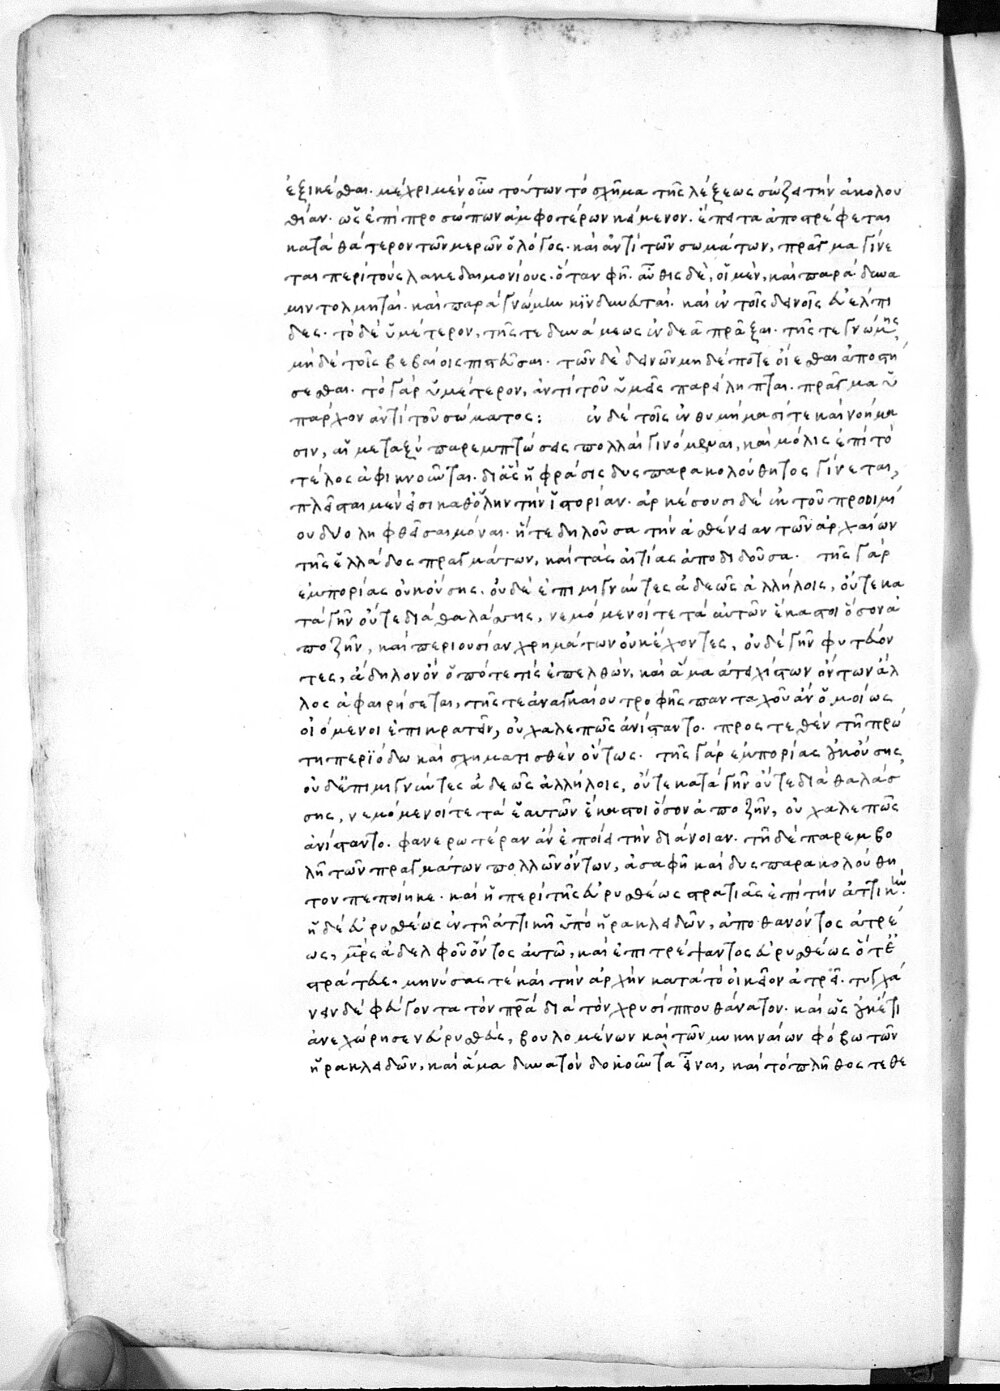 ἐξικέσθαι. μέχρι μὲν οὖν τούτων τὸ σχῆμα τῆς λέξεως σώζει τὴν ἀκολου
θίαν. ὡς ἐπὶ προσώπων ἀμφοτέρων κείμενον. ἔπειτα ἀποστρέφεται
κατὰ θάτερον τῶν μερῶν ὁ λόγος. καὶ ἀντὶ τῶν σωμάτων, πρᾶγμα γίνε
ται περὶ τοὺς λακεδαιμονίους. ὅταν φῆ. αὖθις δὲ, οἱ μὲν, καὶ παρὰ δύνα
μιν τολμηταί. καὶ παρὰ γνώμην κινδυνευταί. καὶ ἐν τοῖς δεινοῖς εὐέλπι
δες. τὸ δὲ ὑμέτερον, τῆς τε δυνάμεως ἐνδεᾶ πρᾶξαι. τῆς τε γνώμης
μηδὲ τοῖς βεβαίοις πιστεῦσαι. τῶν δὲ δεινῶν μηδέποτε οἴεσθαι ἀπολυθή
σεσθαι. τὸ γὰρ ὑμέτερον, ἀντὶ τοῦ ὑμεῖς παρείληπται. πρᾶγμα ὑ
πάρχον ἀντὶ τοῦ σώματος: ἐν δὲ τοῖς ἐνθυμήμασί τε καὶ νοήμα
σιν, αἱ μεταξὺ παρεμπτώσεις πολλαὶ γινόμεναι, καὶ μόλις ἐπὶ τὸ
τέλος ἀφικνοῦνται. δι' ἃς ἡ φράσις δυσπαρακολούθητος γίνεται,
πλεῖσται μὲν εἰσι καθ' ὅλην τὴν ἱστορίαν. ἀρκέσουσι δὲ ἐκ τοῦ προοιμί
ου δύο ληφθεῖσαι μόναι. ἥ τε δηλοῦσα τὴν ἀσθένειαν τῶν ἀρχαίων
τῆς ἑλλάδος πραγμάτων, καὶ τὰς αἰτίας ἀποδιδοῦσα. τῆς γὰρ
ἐμπορίας οὐκ οὔσης. οὐδὲ ἐπιμιγνύντες ἀδεῶς ἀλλήλοις, οὔτε κα
τὰ γῆν οὔτε διὰ θαλάσσης, νεμόμενοί τε τὰ αὑτῶν ἕκαστοι ὅσον ἀ
ποζῆν, καὶ περιουσίαν χρημάτων οὐκ ἔχοντες, οὐδὲ γῆν φυτεύον
τες, ἄδηλον ὂν ὁπότε τις ἐπελθὼν, καὶ ἅμα ἀτειχίστων ὄντων ἄλ
λος ἀφαιρήσεται, τῆς τε ἀναγκαίου τροφῆς πανταχοῦ ἂν ὁμοίως
οἰόμενοι ἐπικρατεῖν, οὐ χαλεπῶς ἀνίσταντο. προστεθὲν τῆ πρώ
τη περιόδω καὶ σχηματισθὲν οὕτως. τῆς γὰρ ἐμπορίας οὐκ οὔσης,
οὐδ' ἐπιμιγνύντες ἀδεῶς ἀλλήλοις, οὔτε κατὰ γῆν οὔτε διὰ θαλάσ
σης, νεμόμενοί τε τὰ ἑαυτῶν ἕκαστοι ὅσον ἀποζῆν, οὐ χαλεπῶς
ἀνίσταντο. φανερωτέραν ἂν ἐποίει τὴν διάνοιαν. τῆ δὲ παρεμβο
λῆ τῶν πραγμάτων πολλῶν ὄντων, ἀσαφῆ καὶ δυσπαρακολούθη
τον πεποίηκε. καὶ ἡ περὶ τῆς εὐρυσθέως στρατιᾶς ἐπὶ τὴν ἀττικήν.
ἡ δὲ εὐρυσθέως ἐν τῆ ἀττικῆ ὑπὸ ἡρακλειδῶν, ἀποθανόντος ἀτρέ
ως, μρὸς ἀδελφοῦ ὄντος αὐτῶ, καὶ ἐπιτρέψαντος εὐρυσθέως ὅτ'
ἐστράτευε. μηνύσας τὲ καὶ τὴν ἀρχὴν κατὰ τὸ οἰκεῖον ἀτρεῖ. τυγχά
νειν δὲ φεύγοντα τὸν πρα διὰ τὸν χρυσίππου θάνατον. καὶ ὡς οὐκέτι
ἀνεχώρησεν εὐρυσθεὺς, βουλομένων καὶ τῶν μυκηναίων φόβω τῶν
ἡρακλειδῶν, καὶ ἅμα δυνατὸν δοκοῦντα εἶναι, καὶ τὸ πλῆθος τεθε